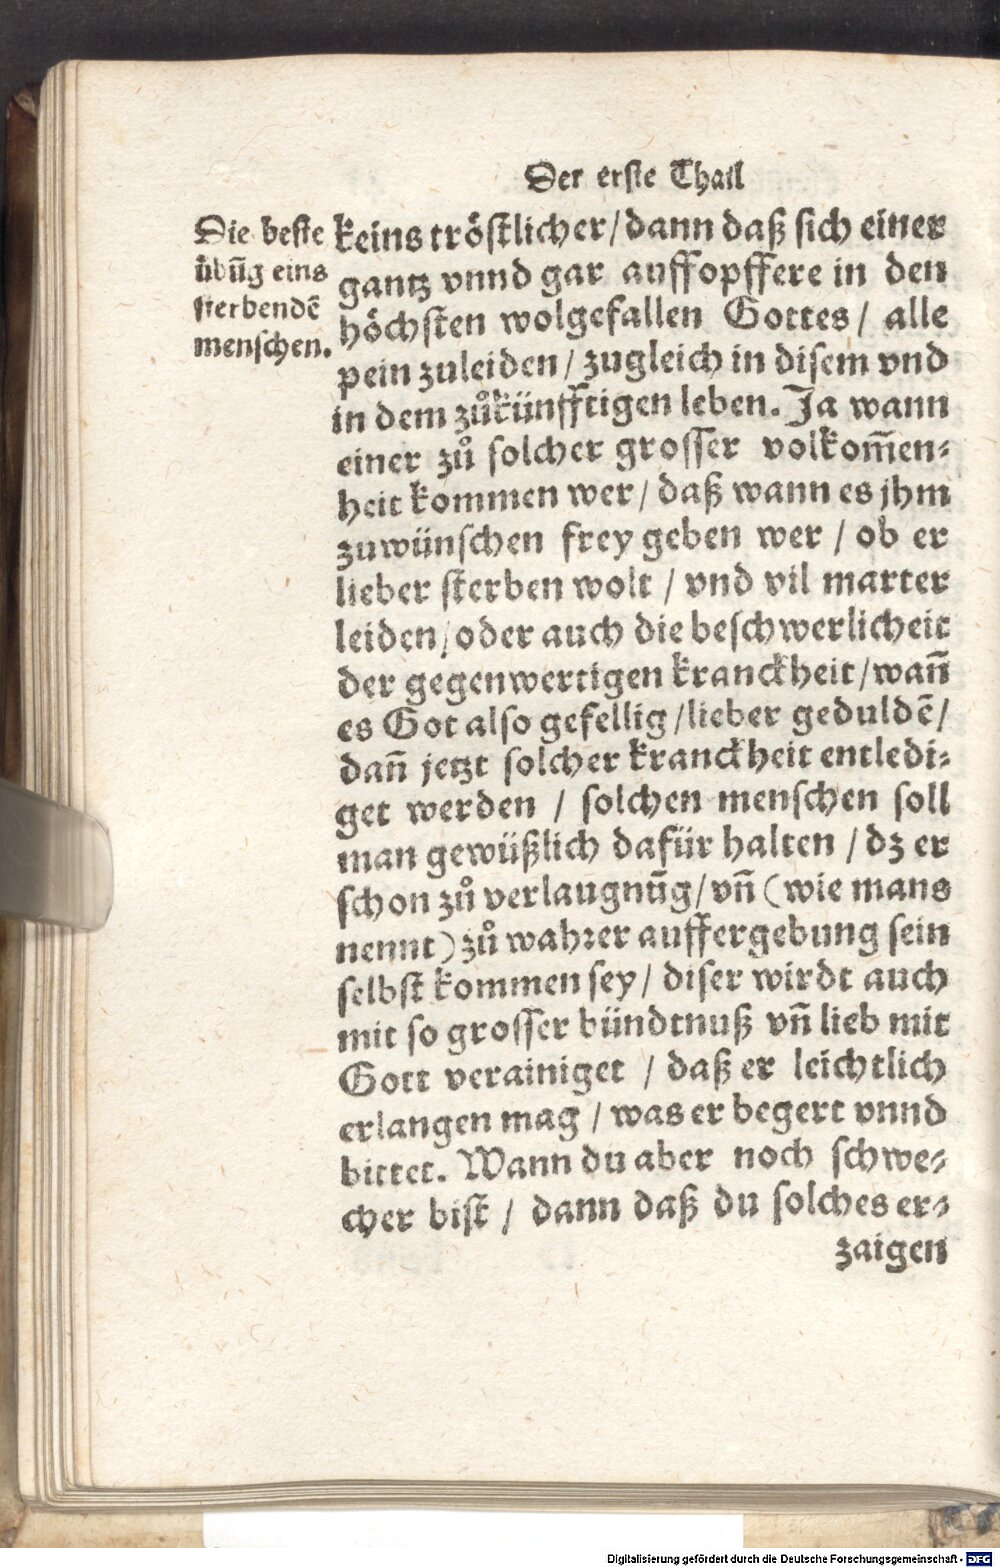 Der erste Thail
Die beste
übũg eins
sterbendẽ
menschen.
keins tröstlicher / dann daß sich einer
gantz vnnd gar auffopffere in den
höchsten wolgefallen Gottes / alle
pein zuleiden / zugleich in disem vnd
in dem zůkünfftigen leben. Ja wann
einer zů solcher grosser volkom̃en-
heit kommen wer / daß wann es jhm
zuwünschen frey geben wer / ob er
lieber sterben wolt / vnd vil marter
leiden / oder auch die beschwerlicheit
der gegenwertigen kranckheit / wañ
es Got also gefellig / lieber geduldẽ /
dañ jetzt solcher kranckheit entledi-
get werden / solchen menschen soll
man gewüßlich dafür halten / dz er
schon zů verlaugnũg / vñ (wie mans
nennt) zů wahrer auffergebung sein
selbst kommen sey / diser wirdt auch
mit so grosser bündtnuß vñ lieb mit
Gott verainiget / daß er leichtlich
erlangen mag / was er begert vnnd
bittet. Wann du aber noch schwe-
cher bist / dann daß du solches er-
zaigen
Digitalisierung gefördert durch die Deutsche Forschungsgemeinschaft - DFG